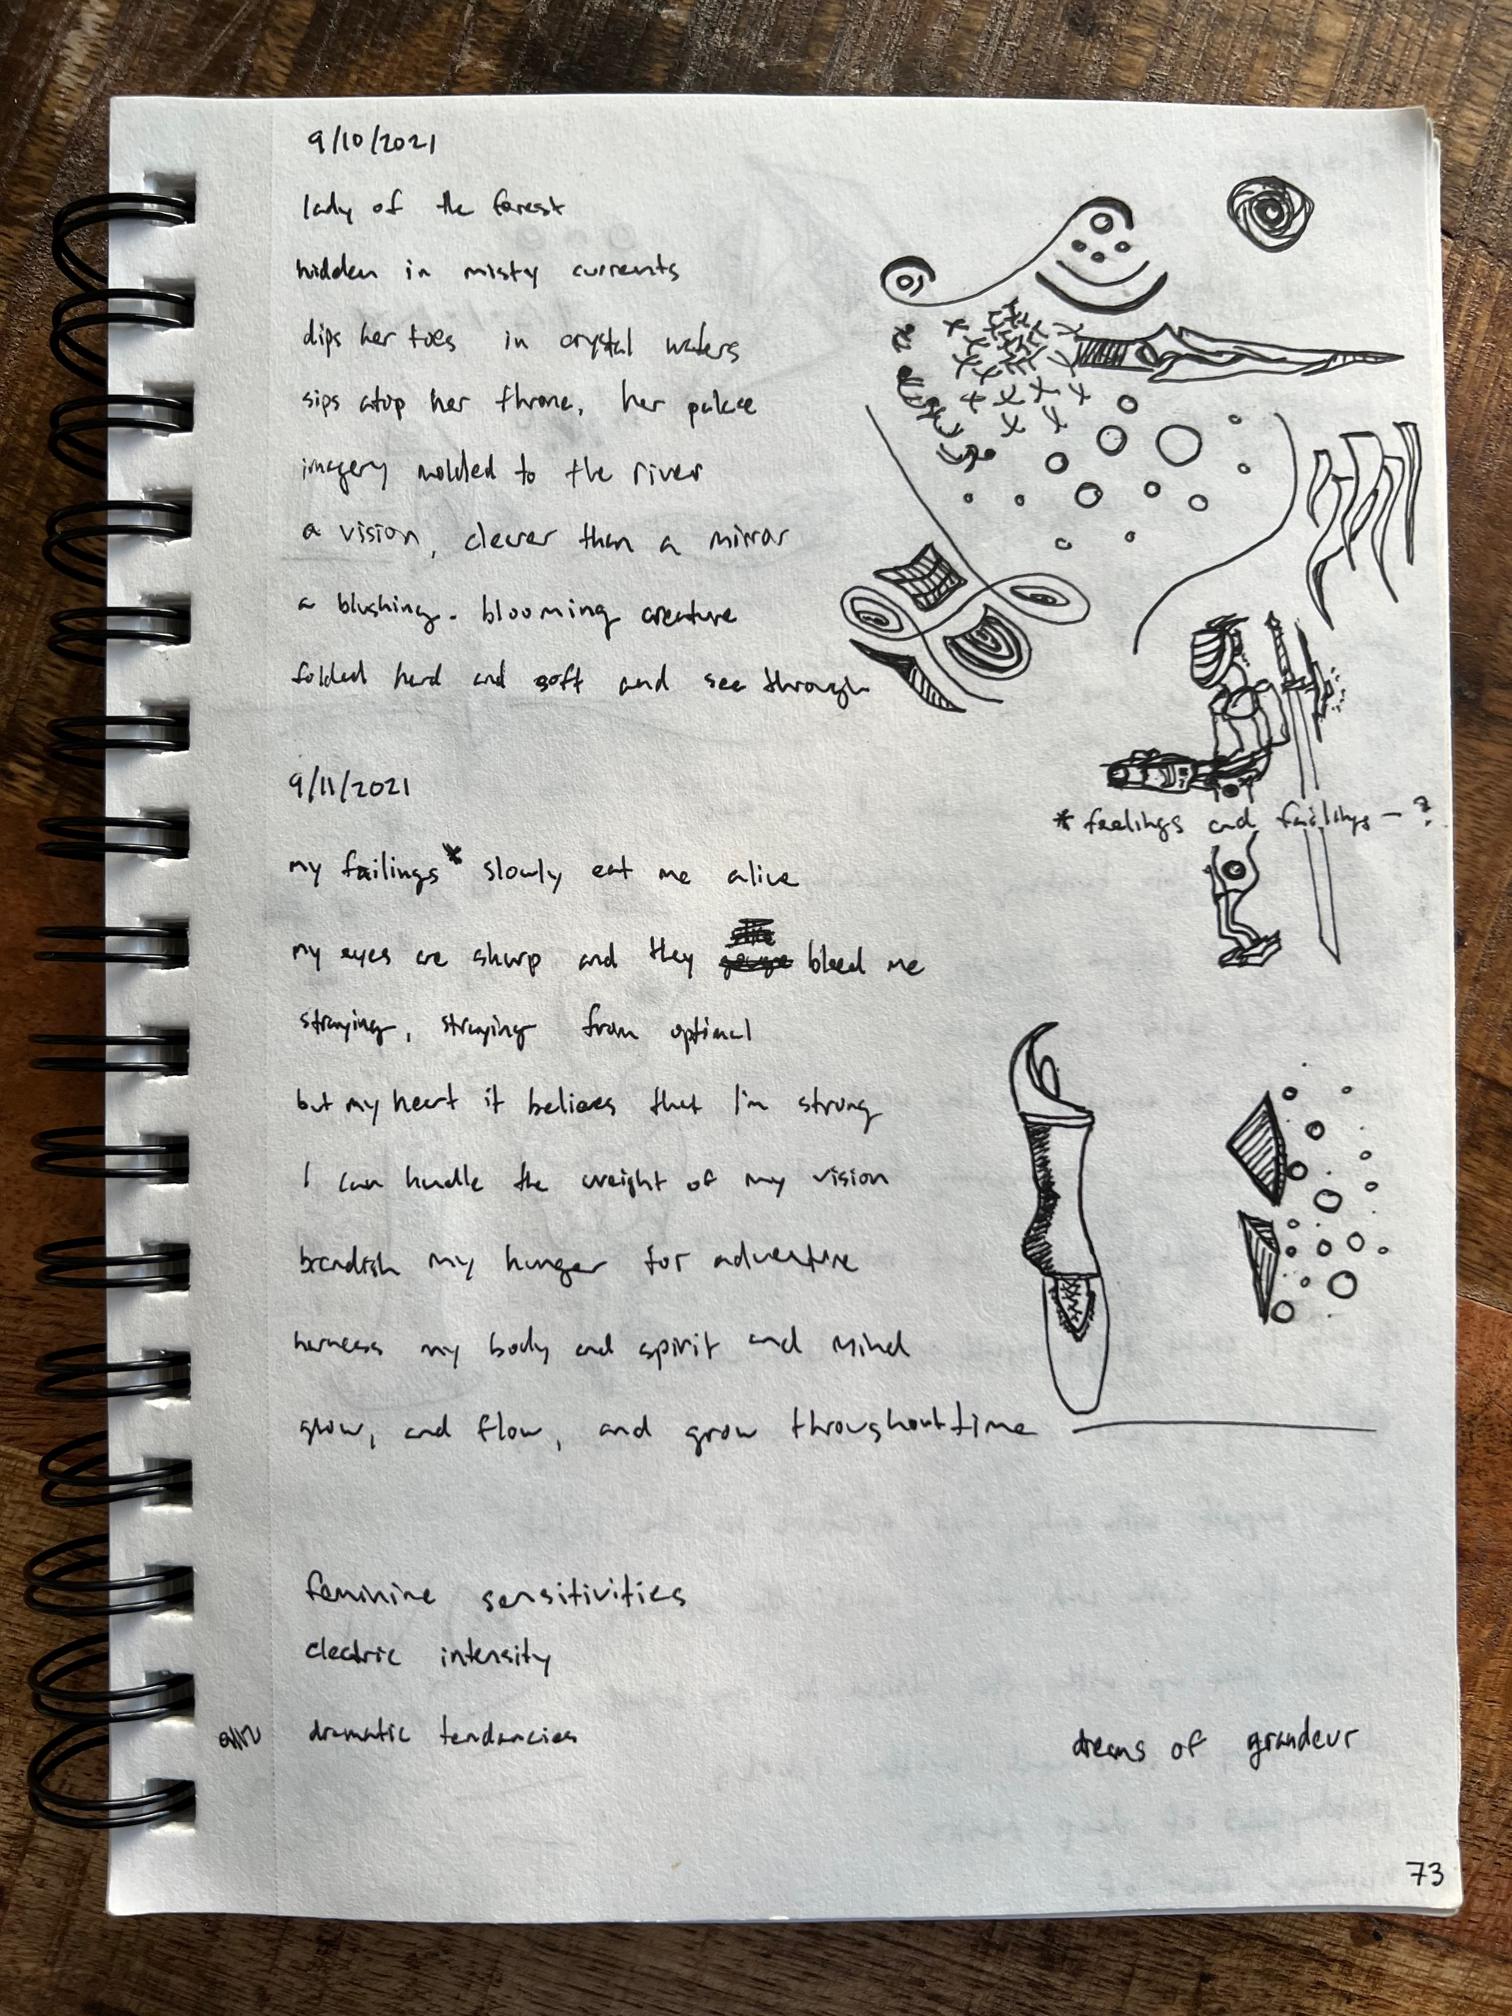 9/10/2021
lady of the forest
hidden in misty currents
dips her toes in crystal waters
sips atop her throne, her palace
imagery molded to the river
a vision, clearer than a mirror
a blushing. blooming creature
folded hard and soft and see through
9/11/2021
* feelings and failings - ?
my failings* slowly eat me alive
my eyes are sharp and they bleed me
straying, straying from optimal
but my heart it believes that I'm strong
I can handle the weight of my vision
brandish my hunger for adventure
harness my body and spirit and mind
glow, and flow, and grow throughout time
feminine sensitivities
electric intensity
dramatic tendancies
dreams of grandeur
73